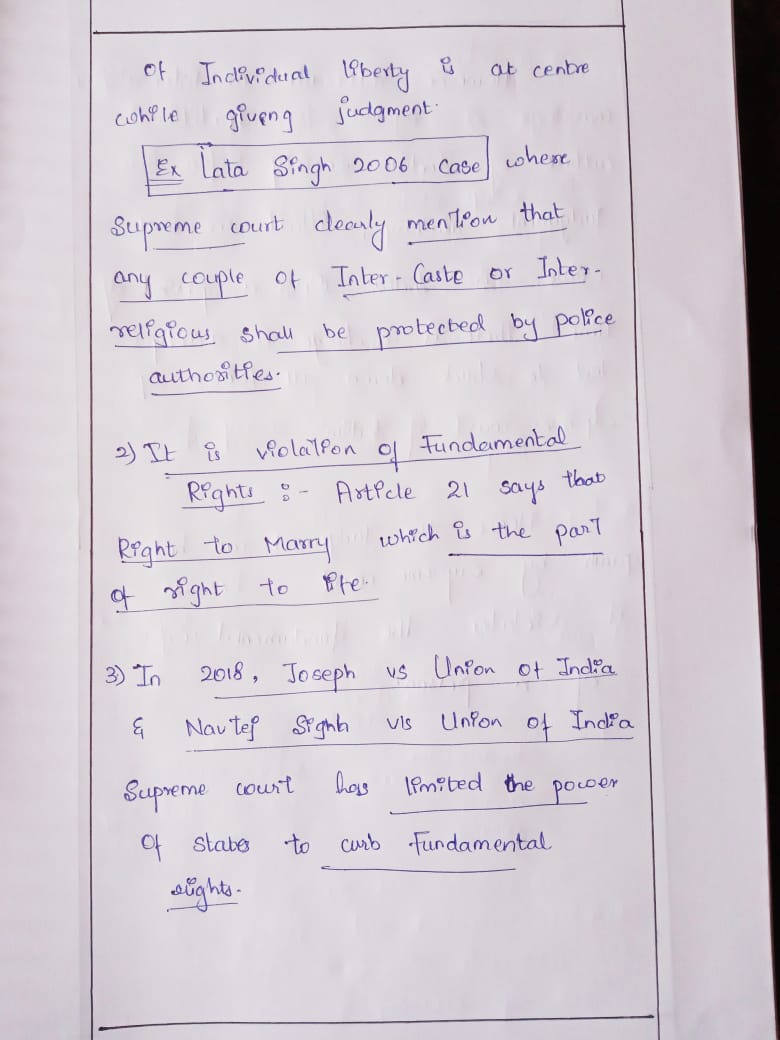 of Individual liberty is at centre
while giveng judgment.
Ex Lata Singh 2006 case where
Supreme court clearly mention that
any couple of Inter-Caste or Inter-
religious shall be protected by police
authorities.
2) It is violation of Fundamental
Rights :- Article 21 says that
Right to Marry which is the part
of right to life.
3) In 2018, Joseph vs Union of India
& Navtej Sighh v/s Union of India
Supreme court has limited the power
of states to curb fundamental
rights.